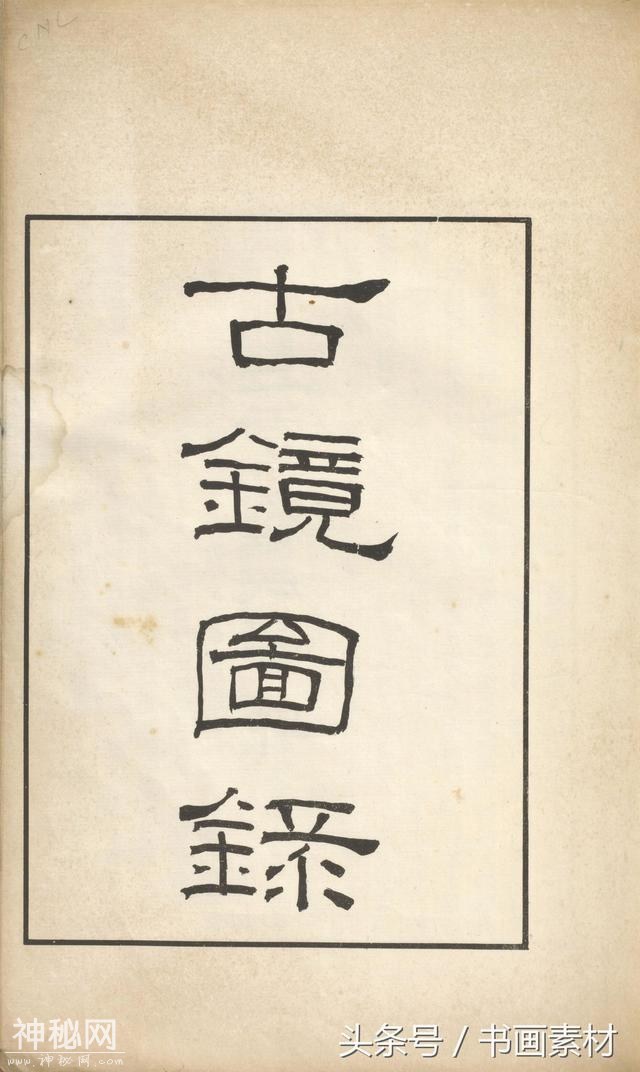 CNL
古
鏡
圖
錄
神秘网
www.神秘网.com
头条号 / 书画素材